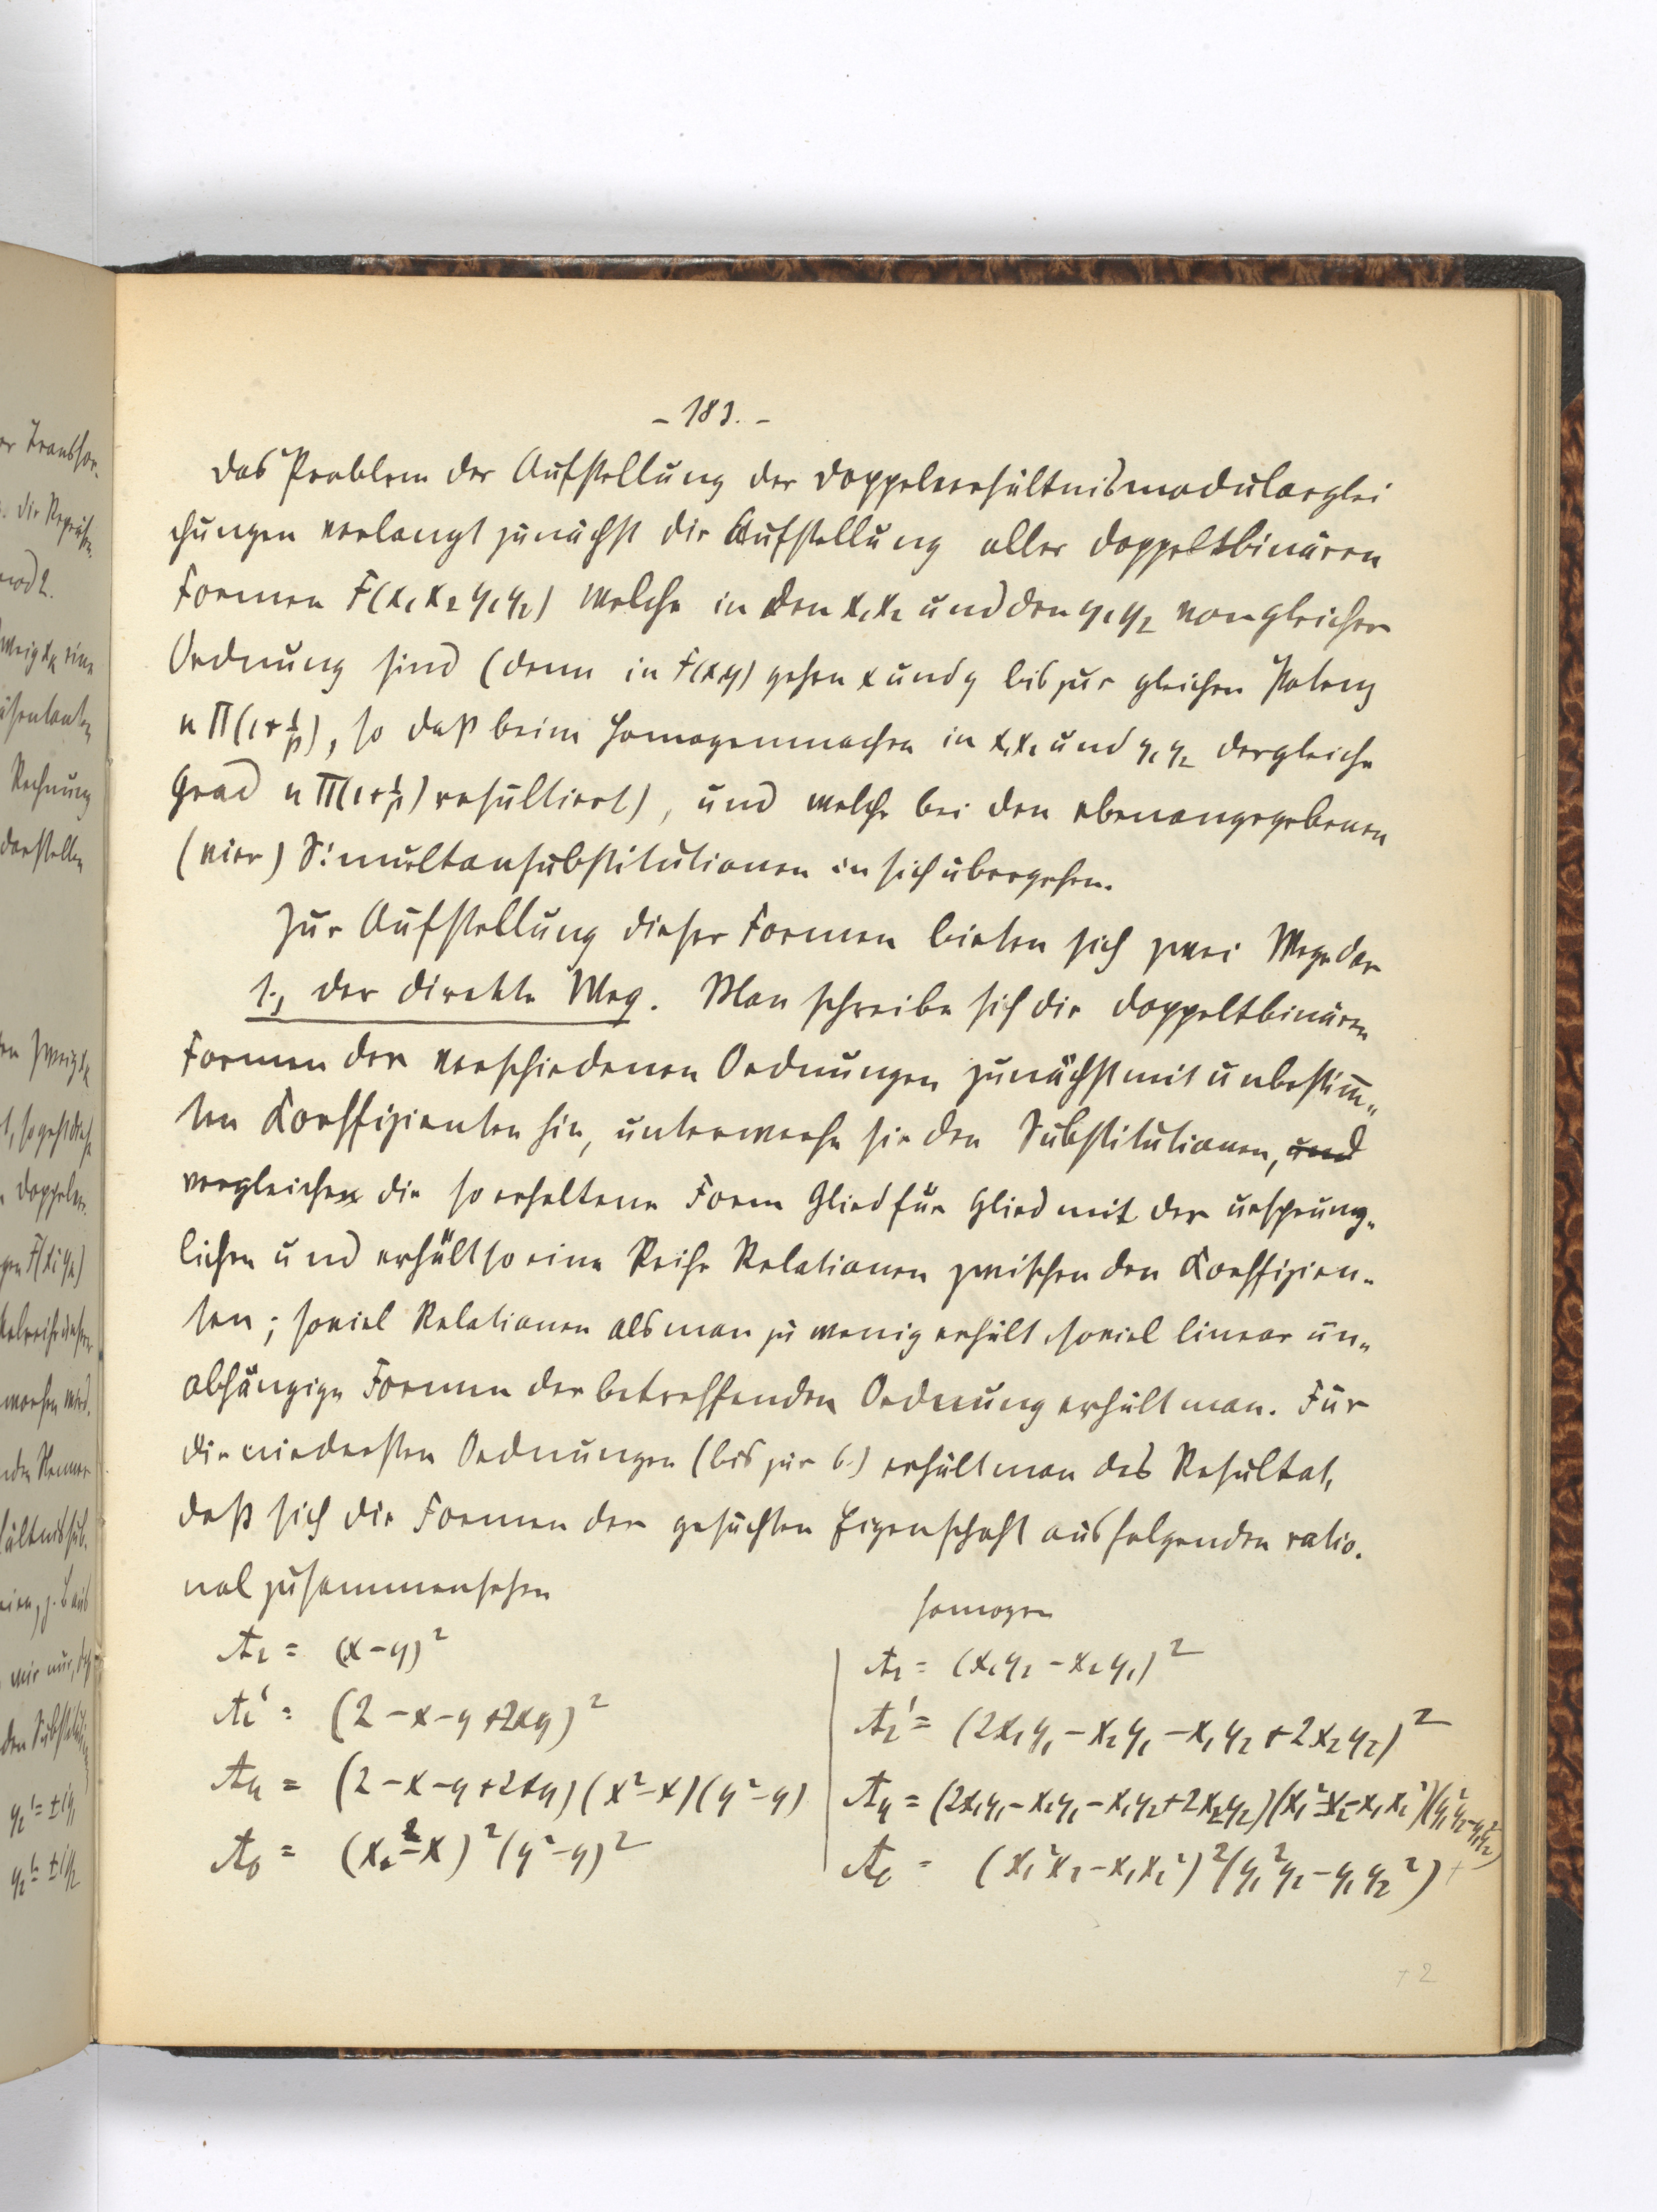 - 183. -
Das Problem der Aufstellung der Doppelverhältnismodularglei
chungen verlangt zunächst die Aufstellung aller doppeltbinären
Formen F(x₁x₂y₁y₂) welche in den x₁x₂ und den y₁y₂ von gleicher
Ordnung sind (denn in F(xy) gehen x und y bis zur gleichen Potenz
n∏(1+1/p), so daß beim Homogenmachen in x₁x₂ und y₁y₂ der gleiche
Grad n∏(1+1/p) resultiert), und welche bei den obenangegebenen
(vier) Simultansubstitutionen in sich übergehen.
Zur Aufstellung dieser Formen bieten sich zwei Wege dar
1., der direkte Weg. Man schreibe sich die doppeltbinären
Formen der verschiedenen Ordnungen zunächst mit unbestim̅-
ten Koeffizienten hin, unterwerfe sie den Substitutionen, und
vergleiche die so erhaltene Form Glied für Glied mit der ursprüng-
lichen und erhält so eine Reihe Relationen zwischen den Koeffizien-
ten; soviel Relationen als man zu wenig erhält, soviel linear un-
abhängige Formen der betreffenden Ordnung erhält man. Für
die niedersten Ordnungen (bis zur 6.) erhält man das Resultat,
daß sich die Formen der gesuchten Eigenschaft aus folgenden ratio-
nal zusammensetzen
homogen
A₂ = (x-y)²
A₂ = (x₁y₂ - x₂y₁)²
A₂' = (2-x-y+2xy)²
A₂' = (2x₁y₁ - x₂y₁ - x₁y₂ + 2x₂y₂)²
A₄ = (2-x-y+2xy)(x²-x)(y²-y)
A₄ = (2x₁y₁ - x₂y₁ - x₁y₂ + 2x₂y₂)(x₁²x₂ - x₁x₂²)(y₁²y₂ - y₁y₂²)
A₆ = (x²-x)²(y²-y)²
A₆ = (x₁²x₂ - x₁x₂²)²(y₁²y₂ - y₁y₂²)
+ 2